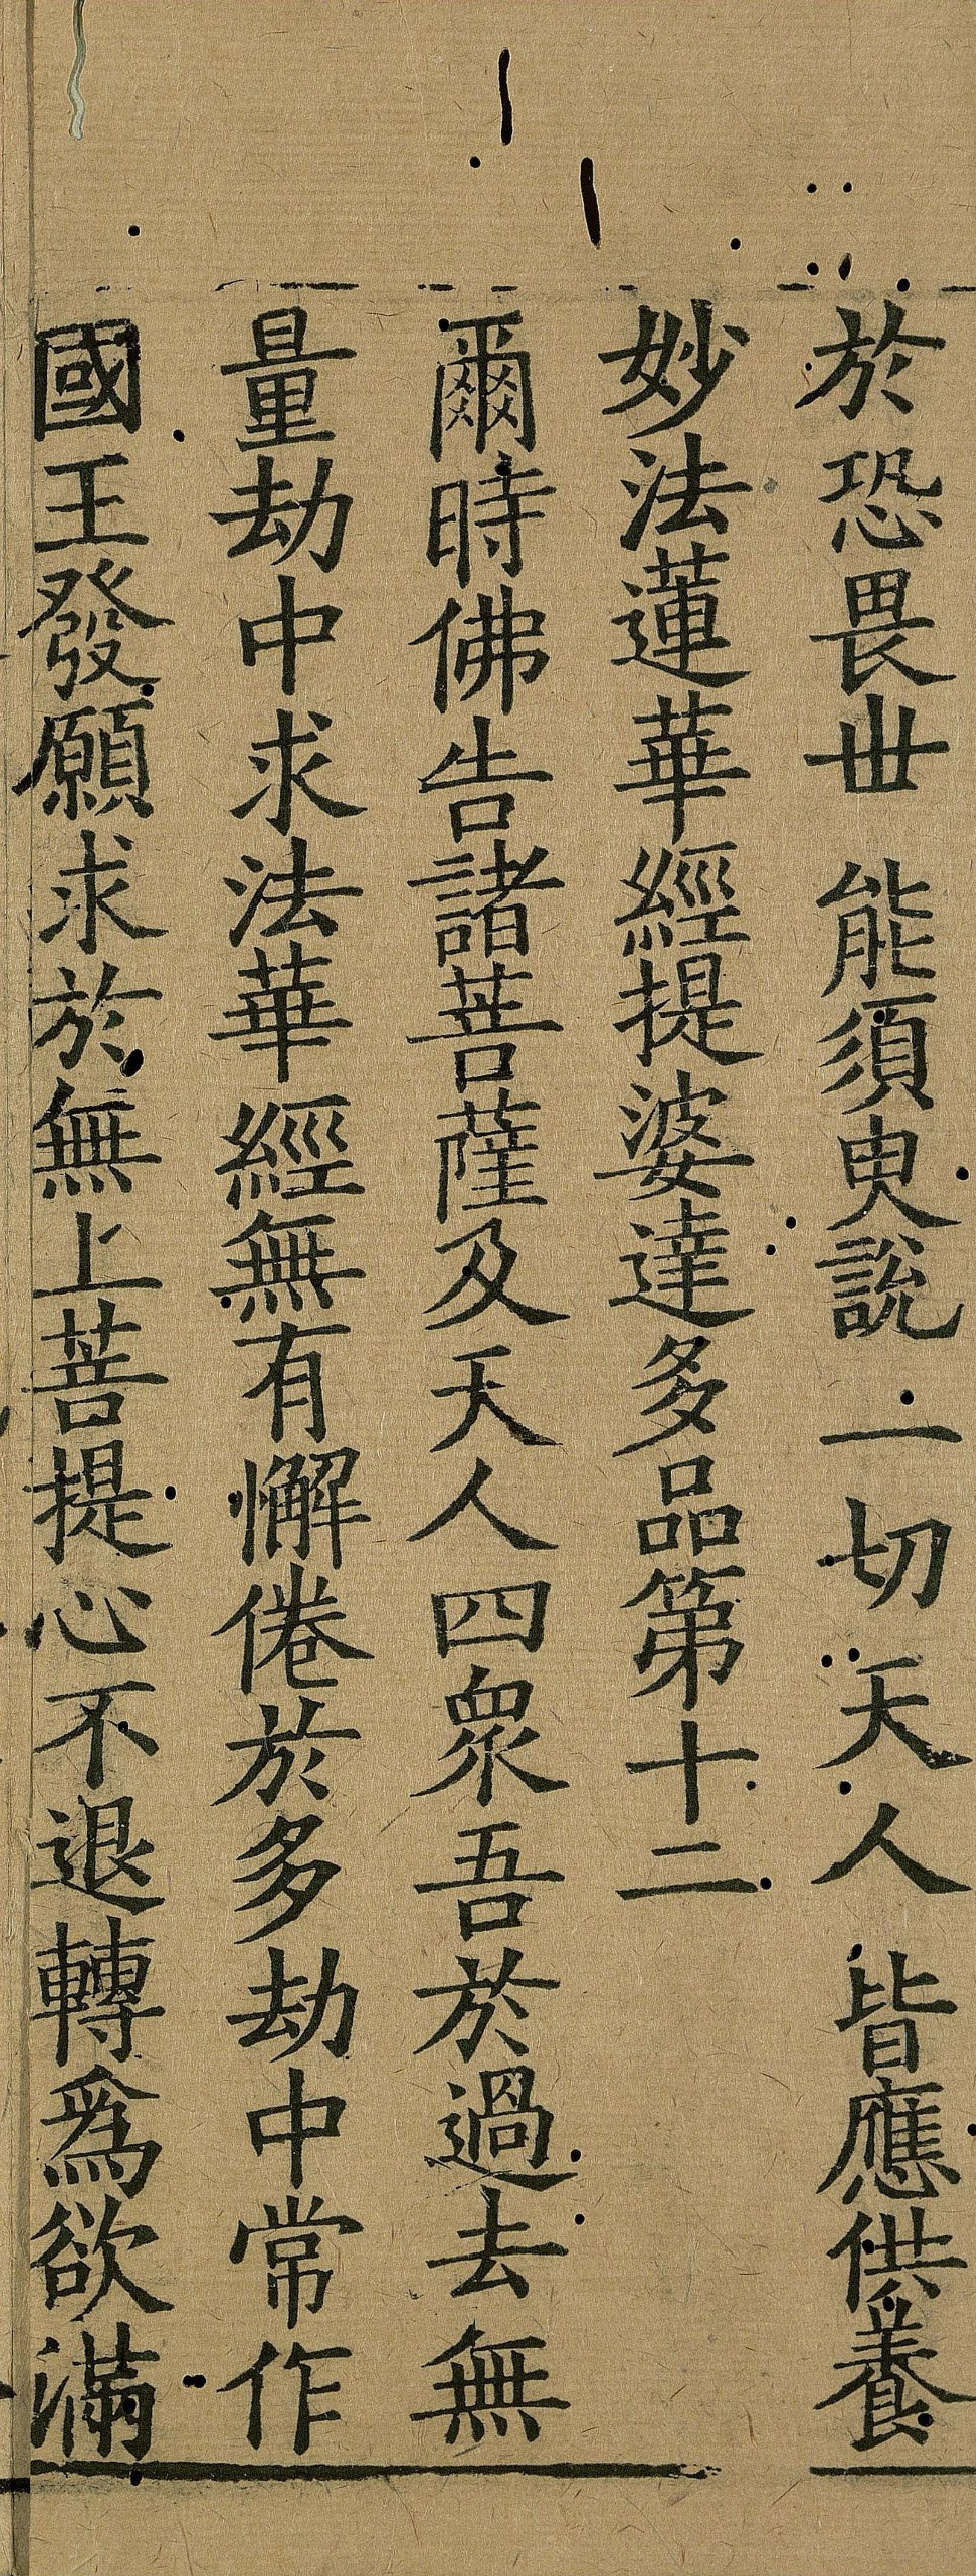 於恐畏世　能須臾說　一切天人　皆應供養
妙法蓮華經提婆達多品第十二
爾時佛告諸菩薩及天人四眾吾於過去無
量劫中求法華經無有懈倦於多劫中常作
國王發願求於無上菩提心不退轉爲欲滿